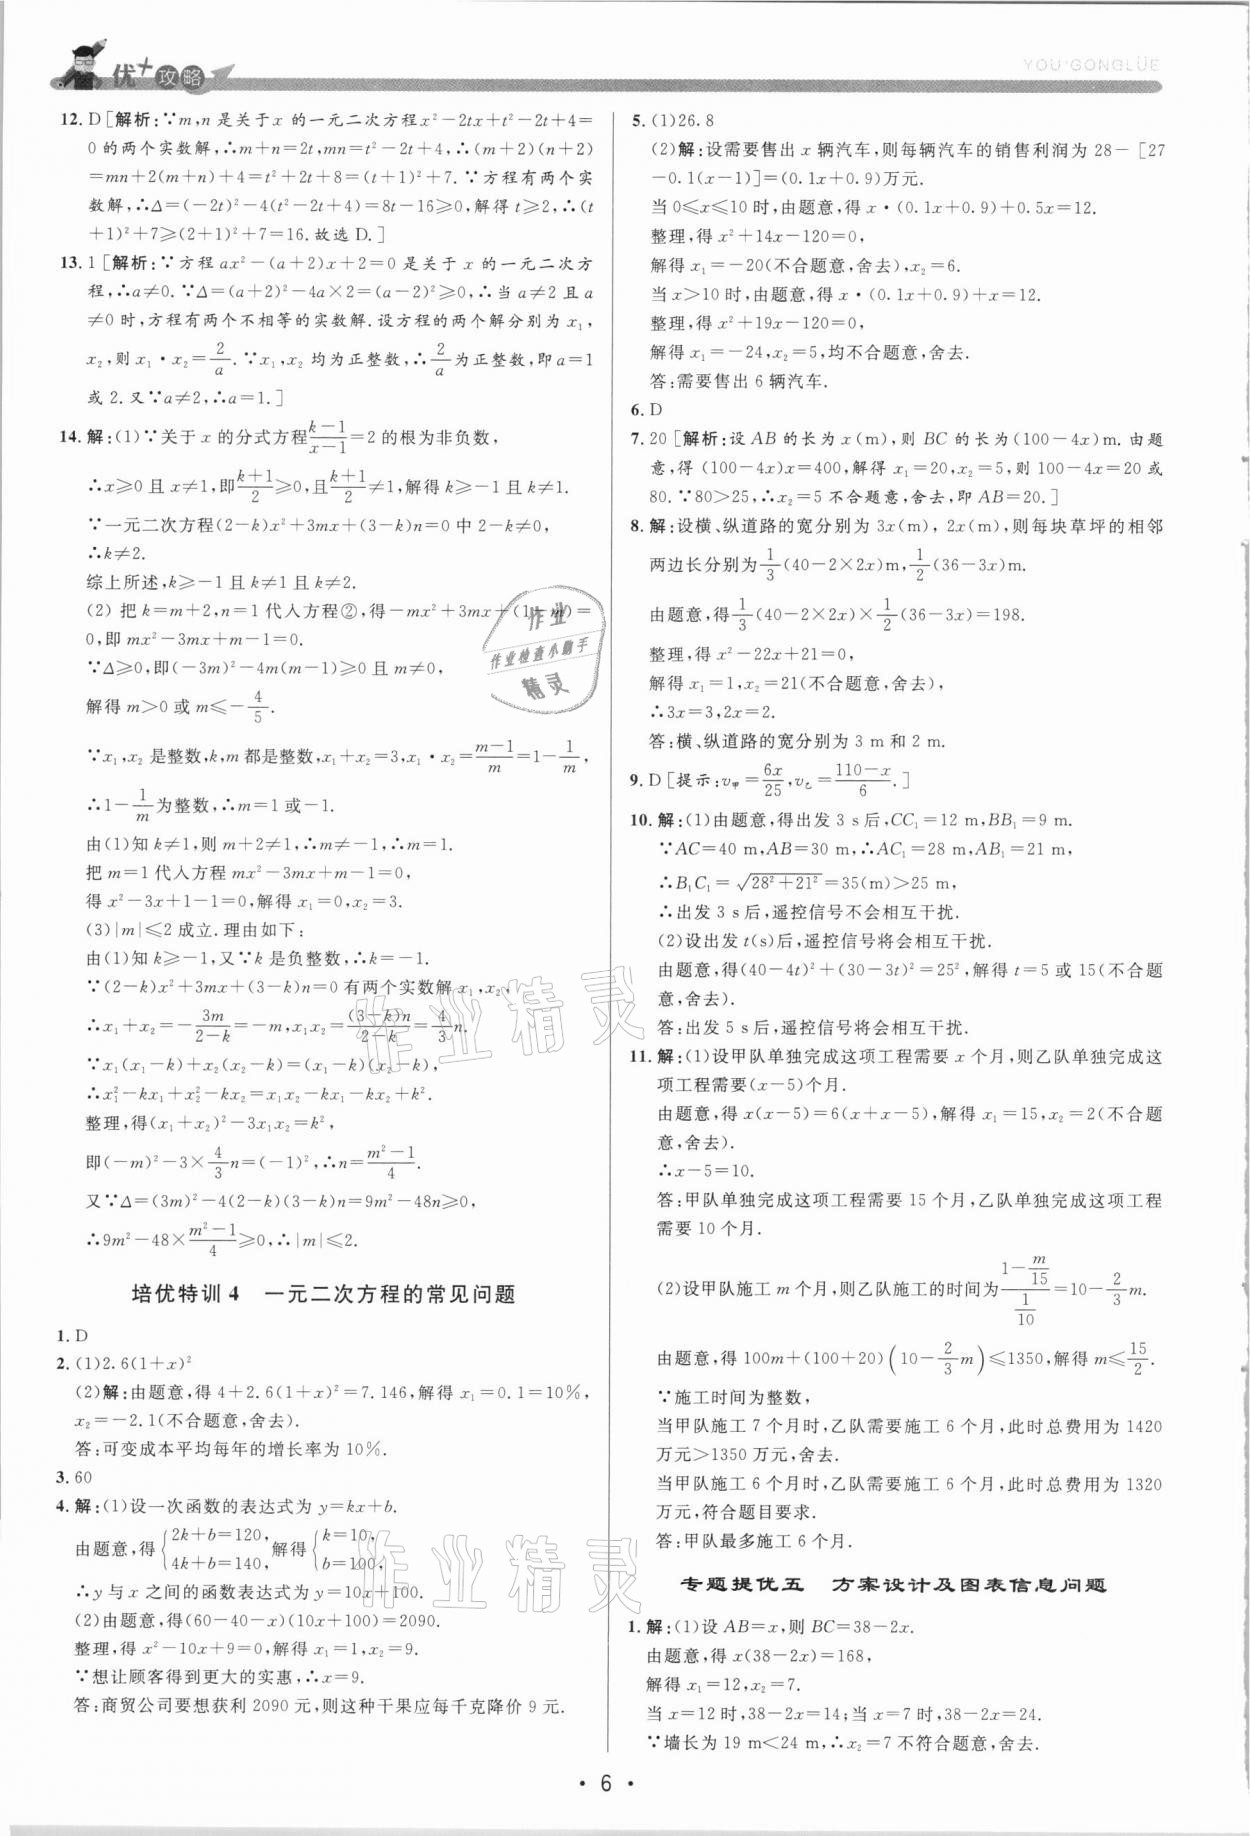 优+攻略
YOU+GONGLÜE
12. D [解析:∵m,n 是关于 x 的一元二次方程 x²-2tx+t²-2t+4=
0 的两个实数解,∴m+n=2t,mn=t²-2t+4,∴(m+2)(n+2)
=mn+2(m+n)+4=t²+2t+8=(t+1)²+7.∵方程有两个实
数解,∴Δ=(-2t)²-4(t²-2t+4)=8t-16≥0,解得 t≥2,∴(t
+1)²+7≥(2+1)²+7=16.故选 D.]
13. 1 [解析:∵方程 ax²-(a+2)x+2=0 是关于 x 的一元二次方
程,∴a≠0.∵Δ=(a+2)²-4a×2=(a-2)²≥0,∴当 a≠2 且 a
≠0 时,方程有两个不相等的实数解.设方程的两个解分别为 x₁,
x₂,则 x₁·x₂=2/a.∵x₁,x₂ 均为正整数,∴2/a为正整数,即 a=1
或 2.又∵a≠2,∴a=1.]
14. 解:(1)∵关于 x 的分式方程(k-1)/(x-1)=2 的根为非负数,
∴x≥0 且 x≠1,即(k+1)/2≥0,且(k+1)/2≠1,解得 k≥-1 且 k≠1.
∵一元二次方程(2-k)x²+3mx+(3-k)n=0 中 2-k≠0,
∴k≠2.
综上所述,k≥-1 且 k≠1 且 k≠2.
(2) 把 k=m+2,n=1 代入方程②,得-mx²+3mx+(1-m)=
0,即 mx²-3mx+m-1=0.
∵Δ≥0,即(-3m)²-4m(m-1)≥0 且 m≠0,
解得 m>0 或 m≤-4/5.
∵x₁,x₂ 是整数,k,m 都是整数,x₁+x₂=3,x₁·x₂=(m-1)/m=1-1/m,
∴1-1/m为整数,∴m=1 或-1.
由(1)知 k≠1,则 m+2≠1,∴m≠-1,∴m=1.
把 m=1 代入方程 mx²-3mx+m-1=0,
得 x²-3x+1-1=0,解得 x₁=0,x₂=3.
(3)|m|≤2 成立.理由如下:
由(1)知 k≥-1,又∵k 是负整数,∴k=-1.
∵(2-k)x²+3mx+(3-k)n=0 有两个实数解 x₁,x₂,
∴x₁+x₂=-3m/(2-k)=-m,x₁x₂=(3-k)n/(2-k)=4/3 n.
∵x₁(x₁-k)+x₂(x₂-k)=(x₁-k)(x₂-k),
∴x₁²-kx₁+x₂²-kx₂=x₁x₂-kx₁-kx₂+k².
整理,得(x₁+x₂)²-3x₁x₂=k²,
即(-m)²-3×4/3 n=(-1)²,∴n=(m²-1)/4.
又∵Δ=(3m)²-4(2-k)(3-k)n=9m²-48n≥0,
∴9m²-48×(m²-1)/4≥0,∴|m|≤2.
培优特训 4 一元二次方程的常见问题
1. D
2. (1)2.6(1+x)²
(2)解:由题意,得 4+2.6(1+x)²=7.146,解得 x₁=0.1=10%,
x₂=-2.1(不合题意,舍去).
答:可变成本平均每年的增长率为 10%.
3. 60
4. 解:(1)设一次函数的表达式为 y=kx+b.
由题意,得{2k+b=120, 4k+b=140,解得{k=10, b=100.
∴y 与 x 之间的函数表达式为 y=10x+100.
(2)由题意,得(60-40-x)(10x+100)=2090.
整理,得 x²-10x+9=0,解得 x₁=1,x₂=9.
∵想让顾客得到更大的实惠,∴x=9.
答:商贸公司要想获利 2090 元,则这种干果应每千克降价 9 元.
5. (1)26.8
(2)解:设需要售出 x 辆汽车,则每辆汽车的销售利润为 28-[27
-0.1(x-1)]=(0.1x+0.9)万元.
当 0≤x≤10 时,由题意,得 x·(0.1x+0.9)+0.5x=12.
整理,得 x²+14x-120=0,
解得 x₁=-20(不合题意,舍去),x₂=6.
当 x>10 时,由题意,得 x·(0.1x+0.9)+x=12.
整理,得 x²+19x-120=0,
解得 x₁=-24,x₂=5,均不合题意,舍去.
答:需要售出 6 辆汽车.
6. D
7. 20 [解析:设 AB 的长为 x(m),则 BC 的长为(100-4x)m.由题
意,得 (100-4x)x=400,解得 x₁=20,x₂=5,则 100-4x=20 或
80.∵80>25,∴x₂=5 不合题意,舍去,即 AB=20.]
8. 解:设横、纵道路的宽分别为 3x(m), 2x(m),则每块草坪的相邻
两边长分别为1/3(40-2×2x)m,1/2(36-3x)m.
由题意,得1/3(40-2×2x)×1/2(36-3x)=198.
整理,得 x²-22x+21=0,
解得 x₁=1,x₂=21(不合题意,舍去),
∴3x=3,2x=2.
答:横、纵道路的宽分别为 3 m 和 2 m.
9. D [提示:v甲=6x/25,v乙=(110-x)/6.]
10. 解:(1)由题意,得出发 3 s 后,CC₁=12 m,BB₁=9 m.
∵AC=40 m,AB=30 m,∴AC₁=28 m,AB₁=21 m,
∴B₁C₁=√(28²+21²)=35(m)>25 m,
∴出发 3 s 后,遥控信号不会相互干扰.
(2)设出发 t(s)后,遥控信号将会相互干扰.
由题意,得(40-4t)²+(30-3t)²=25²,解得 t=5 或 15(不合题
意,舍去).
答:出发 5 s 后,遥控信号将会相互干扰.
11. 解:(1)设甲队单独完成这项工程需要 x 个月,则乙队单独完成这
项工程需要(x-5)个月.
由题意,得 x(x-5)=6(x+x-5),解得 x₁=15,x₂=2(不合题
意,舍去).
∴x-5=10.
答:甲队单独完成这项工程需要 15 个月,乙队单独完成这项工程
需要 10 个月.
(2)设甲队施工 m 个月,则乙队施工的时间为(1-m/15)/(1/10)=10-2/3 m.
由题意,得 100m+(100+20)(10-2/3 m)≤1350,解得 m≤15/2.
∵施工时间为整数,
当甲队施工 7 个月时,乙队需要施工 6 个月,此时总费用为 1420
万元>1350 万元,舍去.
当甲队施工 6 个月时,乙队需要施工 6 个月,此时总费用为 1320
万元,符合题目要求.
答:甲队最多施工 6 个月.
专题提优五 方案设计及图表信息问题
1. 解:(1)设 AB=x,则 BC=38-2x.
由题意,得 x(38-2x)=168,
解得 x₁=12,x₂=7.
当 x=12 时,38-2x=14;当 x=7 时,38-2x=24.
∵墙长为 19 m<24 m,∴x₂=7 不符合题意,舍去.
· 6 ·
作业
作业检查小助手
精灵
作业精灵
作业精灵